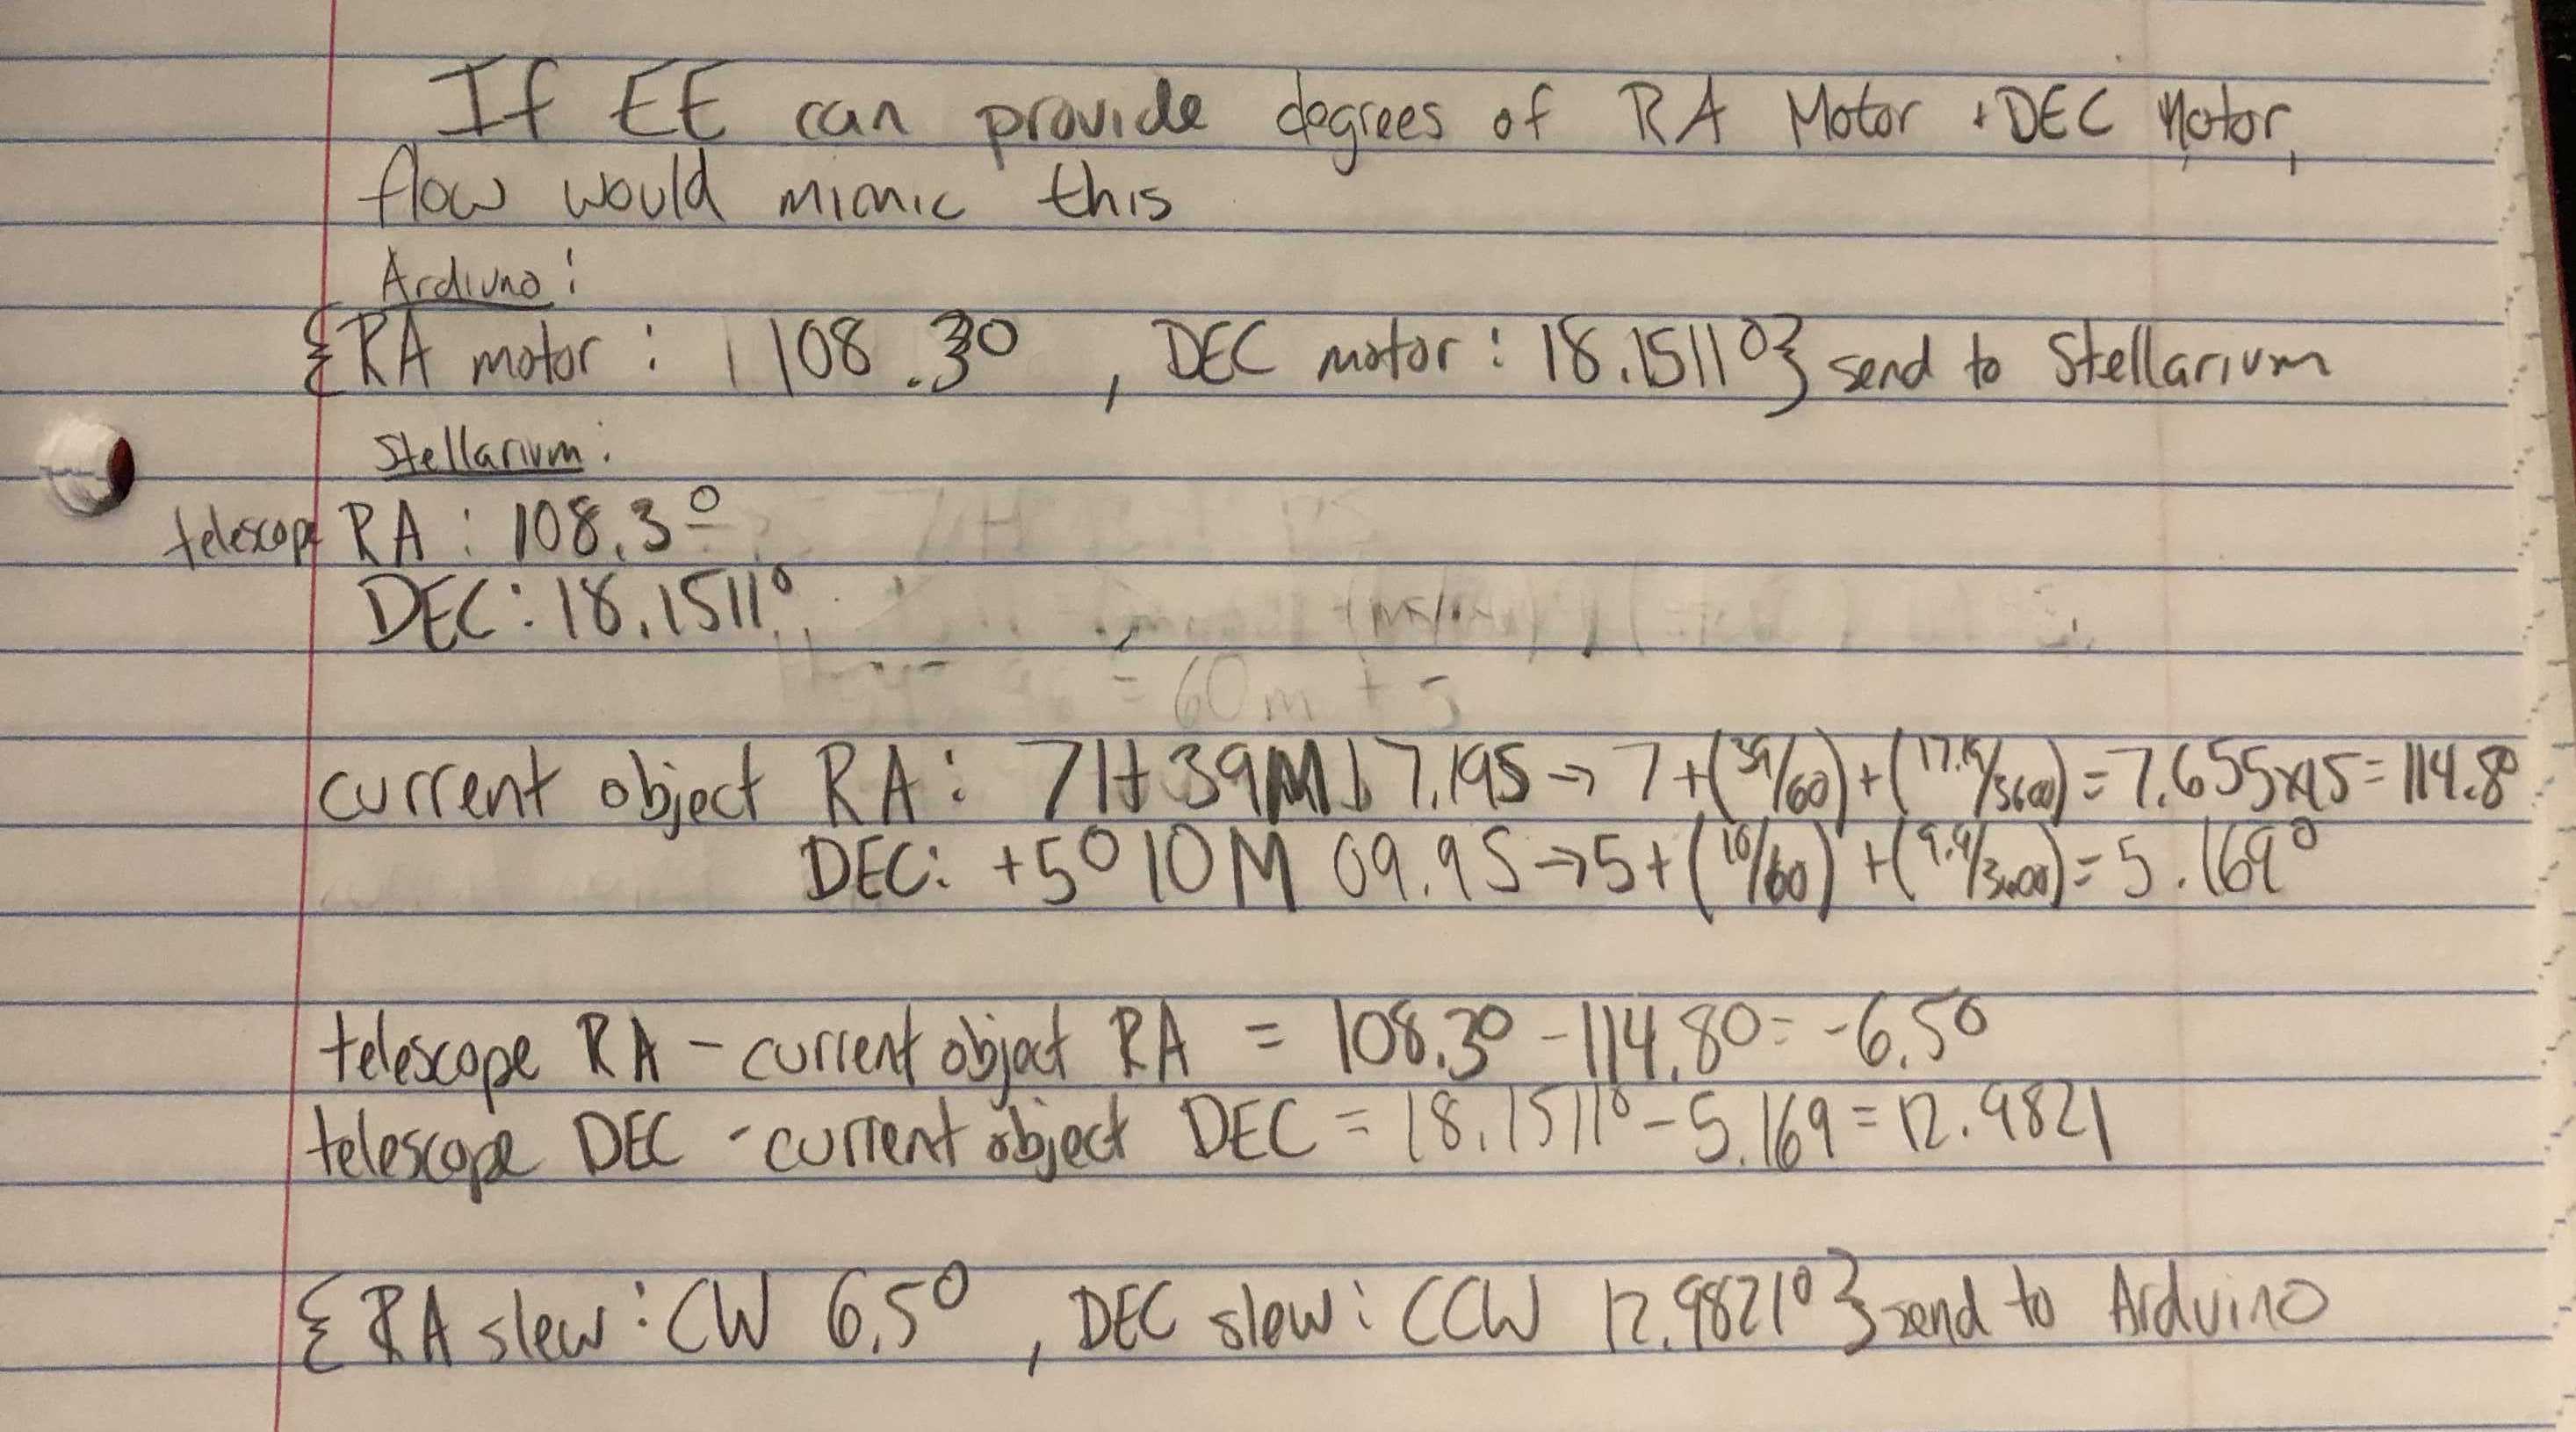 If EE can provide degrees of RA Motor + DEC Motor,
flow would mimic this
Ardiuno:
{RA motor: 108.3°, DEC motor: 18.1511°} send to Stellarium
Stellarium:
telescope RA: 108.3°
DEC: 18.1511°
= 60m + s
current object RA: 7H 39M 17.19S → 7+(39/60)+(17.19/3600)=7.655x15=114.8°
DEC: +5° 10M 09.9S → 5+(10/60)+(9.9/3600)=5.169°
telescope RA - current object RA = 108.3° - 114.8° = -6.5°
telescope DEC - current object DEC = 18.1511° - 5.169 = 12.9821
{RA slew: CW 6.5°, DEC slew: CCW 12.9821°} send to Arduino